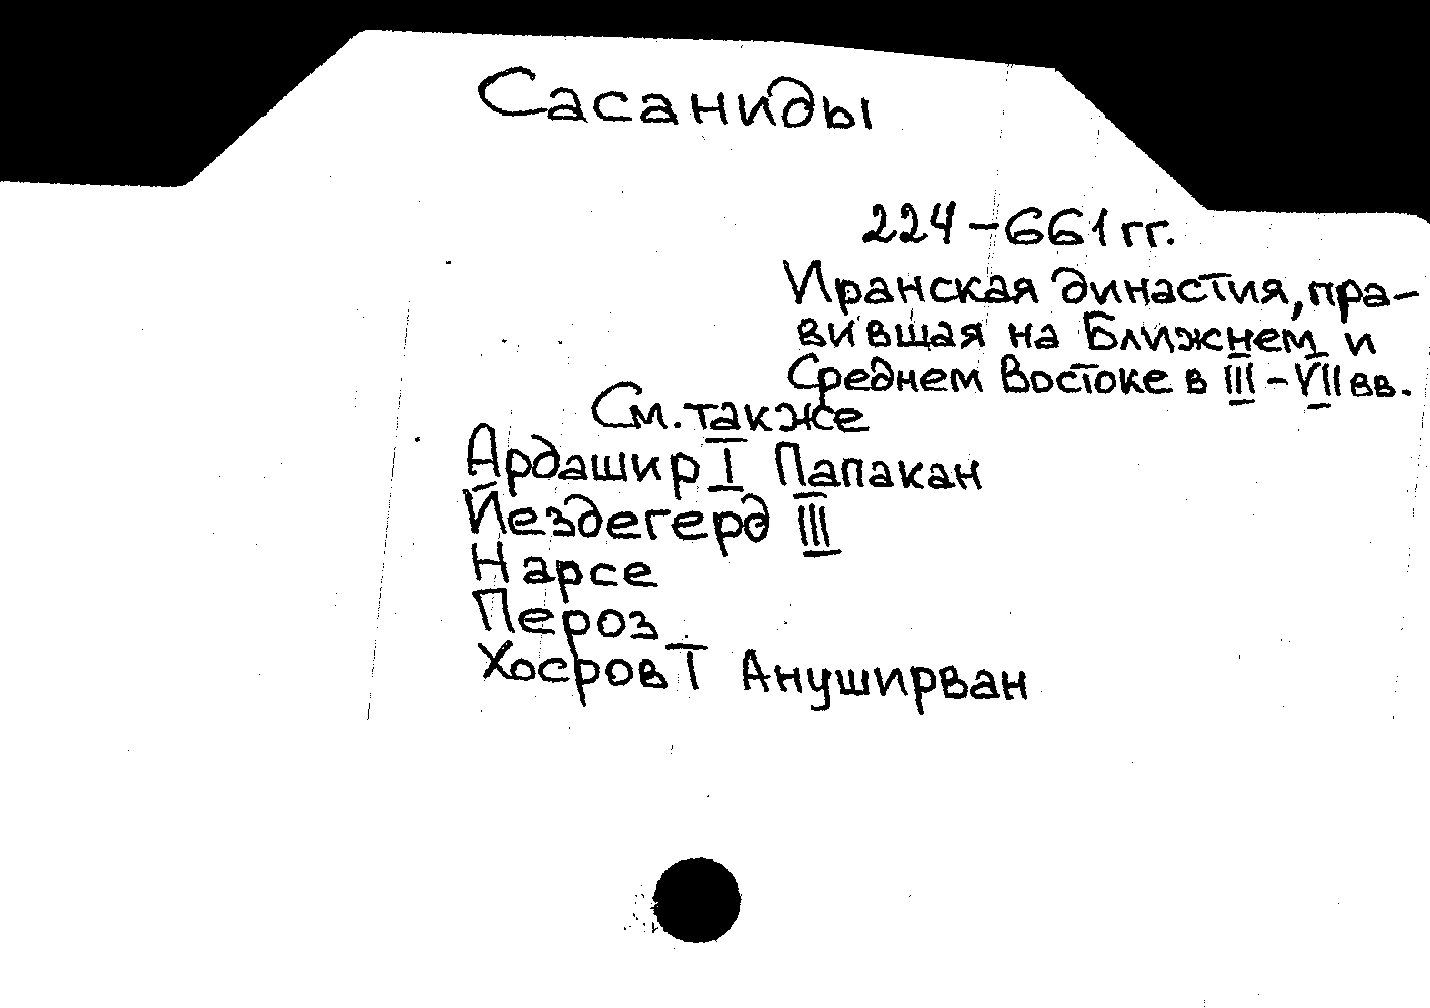 Сасаниды
224-661 гг.
Иранская династия, пра-
вившая на Ближнем и
Среднем Востоке в III-VII вв.
См. также
Ардашир I Папакан
Йездегерд III
Нарсе
Пероз
Хосров I Ануширван